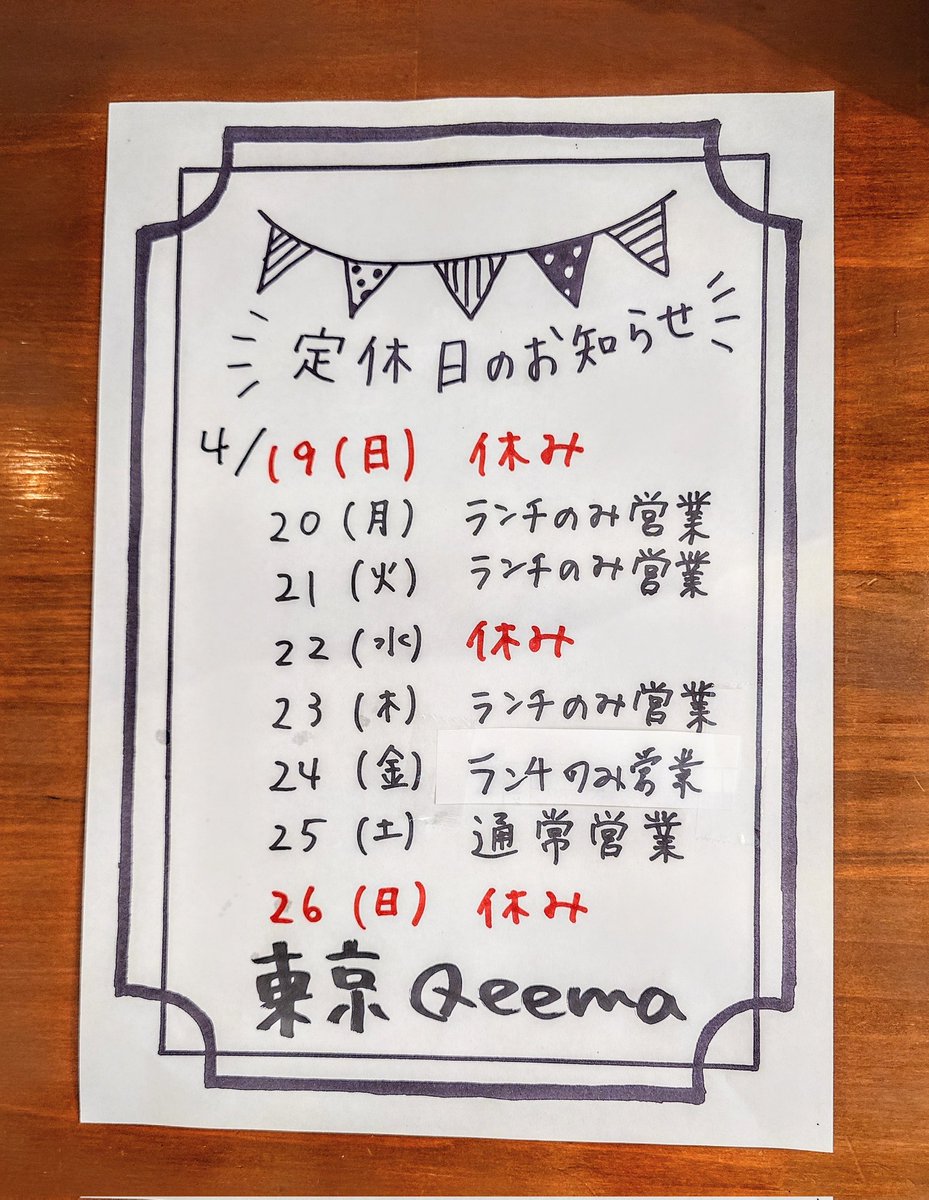 定休日のお知らせ
4/19(日) 休み
20(月) ランチのみ営業
21(火) ランチのみ営業
22(水) 休み
23(木) ランチのみ営業
24(金) ランチのみ営業
25(土) 通常営業
26(日) 休み
東京Qeema